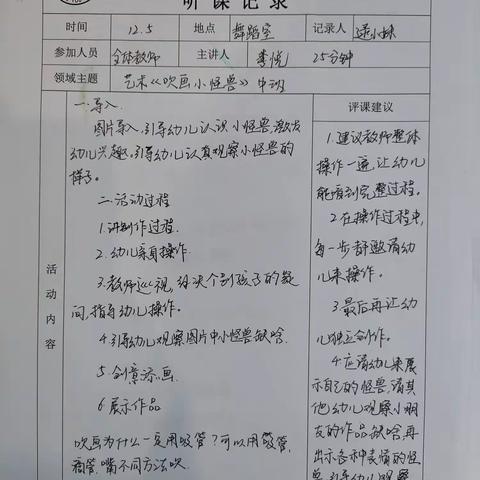 听课记录
时间 12.5 地点 舞蹈室 记录人 小妹
参加人员 全体教师 主讲人 李悦 25分钟
领域主题 艺术《吹画小怪兽》中班
活动内容
一.导入.
图片导入,引导幼儿认识小怪兽激发
幼儿兴趣,引导幼儿认真观察小怪兽的
样子。
二.活动过程
1.讲制作过程.
2.幼儿亲自操作.
3.教师巡视,解决个别孩子的疑
问,指导幼儿操作。
4.引导幼儿观察图片中小怪兽缺啥.
5.创意添画.
6.展示作品
吹画为什么一定用吸管?可以用吸管,
嘴不同方法吹.
评课建议
1.建议教师整体
操作一遍,让幼儿
能看到完整过程。
2.在操作过程中,
每一步都邀请幼
儿来操作。
3.最后再让幼
儿独立创作。
4.应请幼儿来展
示自己的怪兽,请其
他幼儿观察小朋
友的作品缺啥,再
出示各种表情的怪
兽,引导幼儿观察